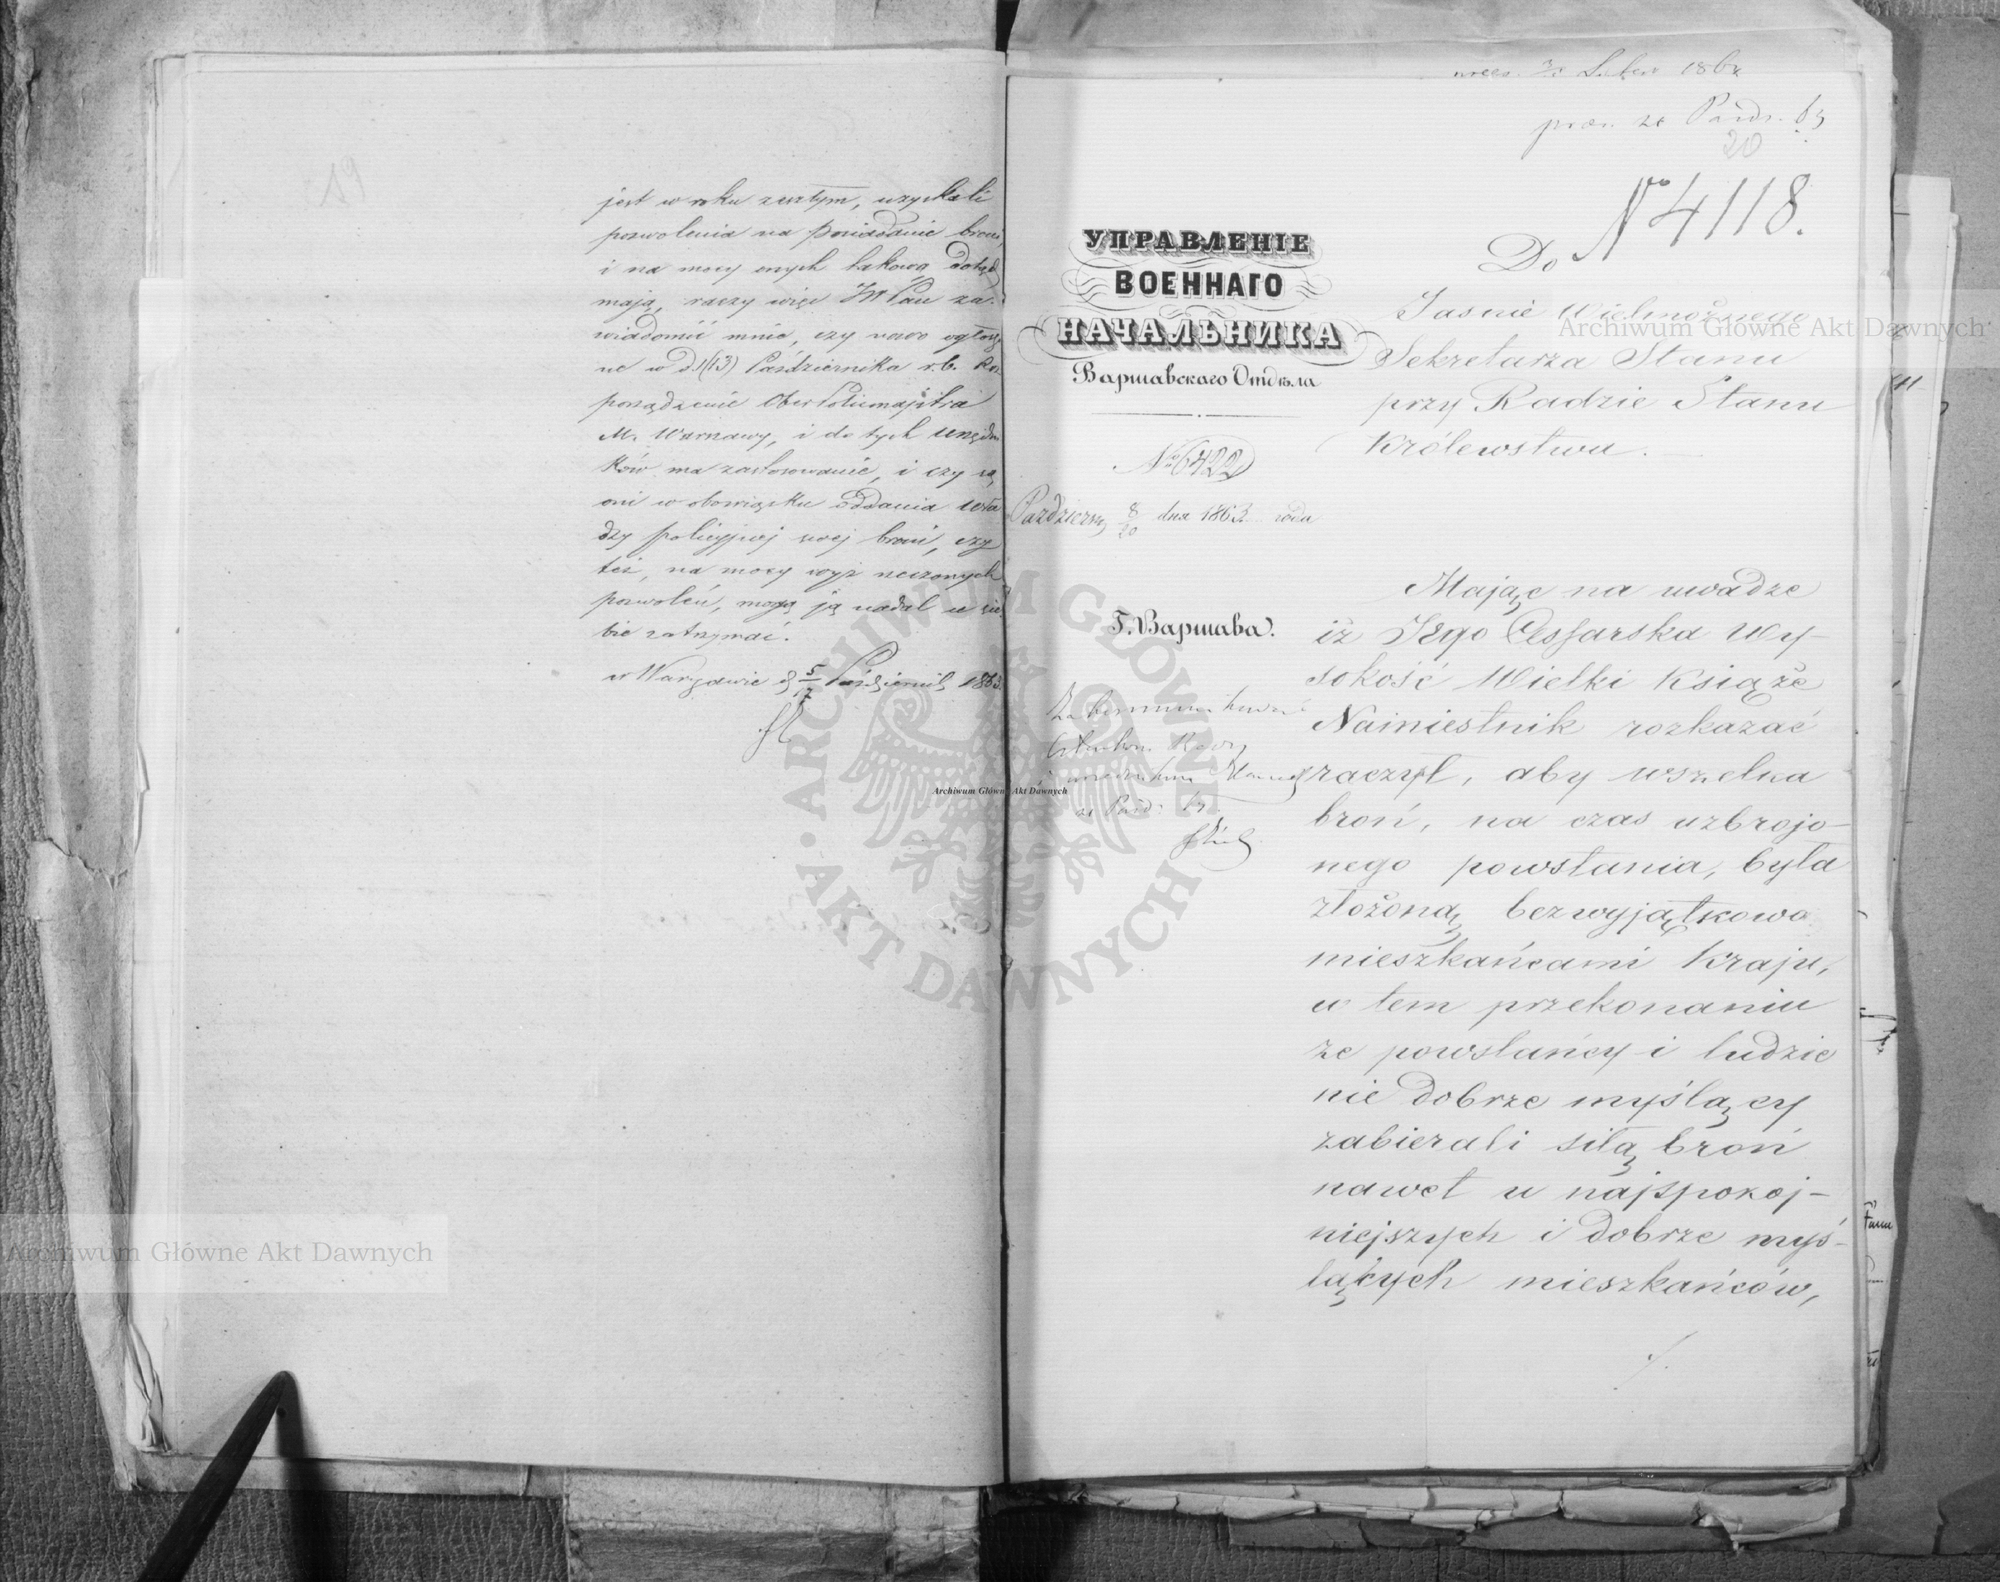 jest w roku zeszłym, uzyskali
pozwolenia na posiadanie broni,
i na mocy onych takową dotąd
mają, raczy więc JW Pan za-
wiadomić mnie, czy nowo ogłoszo
ne w d. 1 (13) Października r. b. Roz
porządzenie OberPolicmajstra
M. Warszawy, i do tych urzędni
ków ma zastosowanie, i czy są
oni w obowiązku oddania wła
dzy policyjnej swej broni, czy
też, na mocy wyż rzeczonych
pozwoleń, mogą ją nadal u sie
bie zatrzymać.
w Warszawie d 5/17 Października 1863.
186
20
№ 4118.
УПРАВЛЕНІЕ
ВОЕННАГО
НАЧАЛЬНИКА
Варшавскаго Отдѣла
№ 6422
Październ. 8/20 дня 1863 года
Г. Варшава.
Do
Jaśnie Wielmożnego
Sekretarza Stanu
przy Radzie Stanu
Królewstwa.
Mając na uwadze
iż Jego Cessarska Wy-
sokość Wielki Książe
Namiestnik rozkazać
raczył, aby wszelka
broń, na czas uzbrojo-
nego powstania, była
złożoną bezwyjątkowo
mieszkańcami Kraju,
w tem przekonaniu
że powstańcy i ludzie
nie dobrze myślący
zabierali siłą broń
nawet u najspokoj-
niejszych i dobrze myś-
lących mieszkańców,
Archiwum Główne Akt Dawnych
Archiwum Główne Akt Dawnych
Archiwum Główne Akt Dawnych
ARCHIWUM GŁÓWNE AKT DAWNYCH